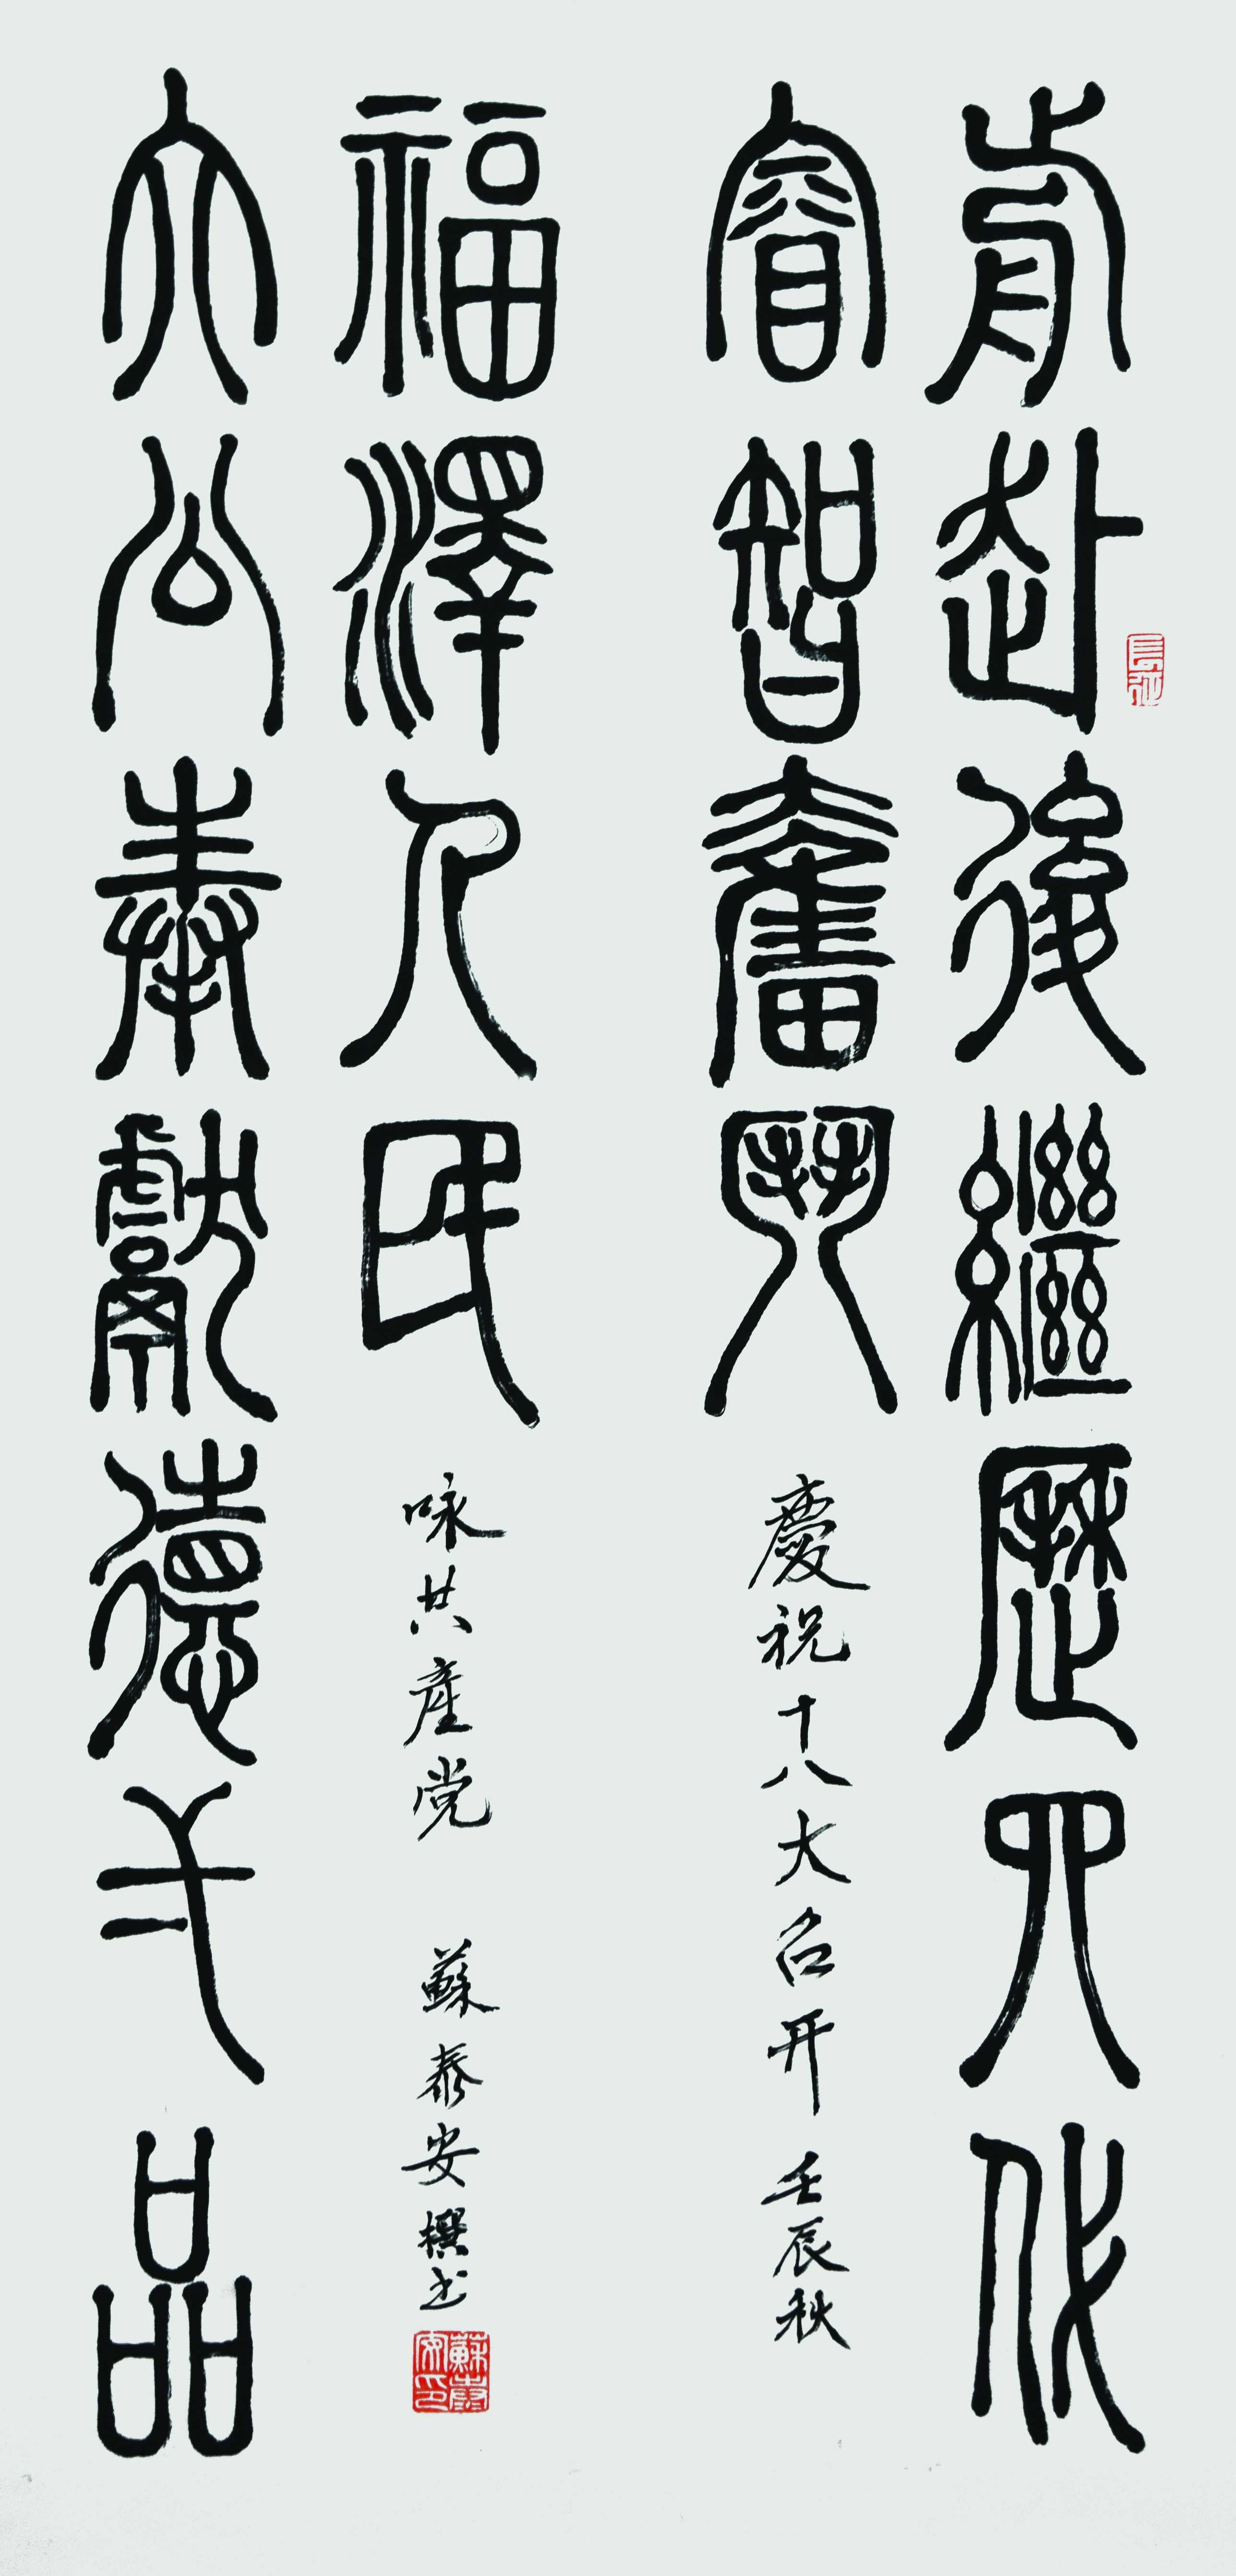 前赴後繼歷四代
睿智奮鬥
慶祝十八大召开 壬辰秋
大公奉獻德弌品
福澤人民
咏共產党 蘇泰安撰书
蘇泰安印